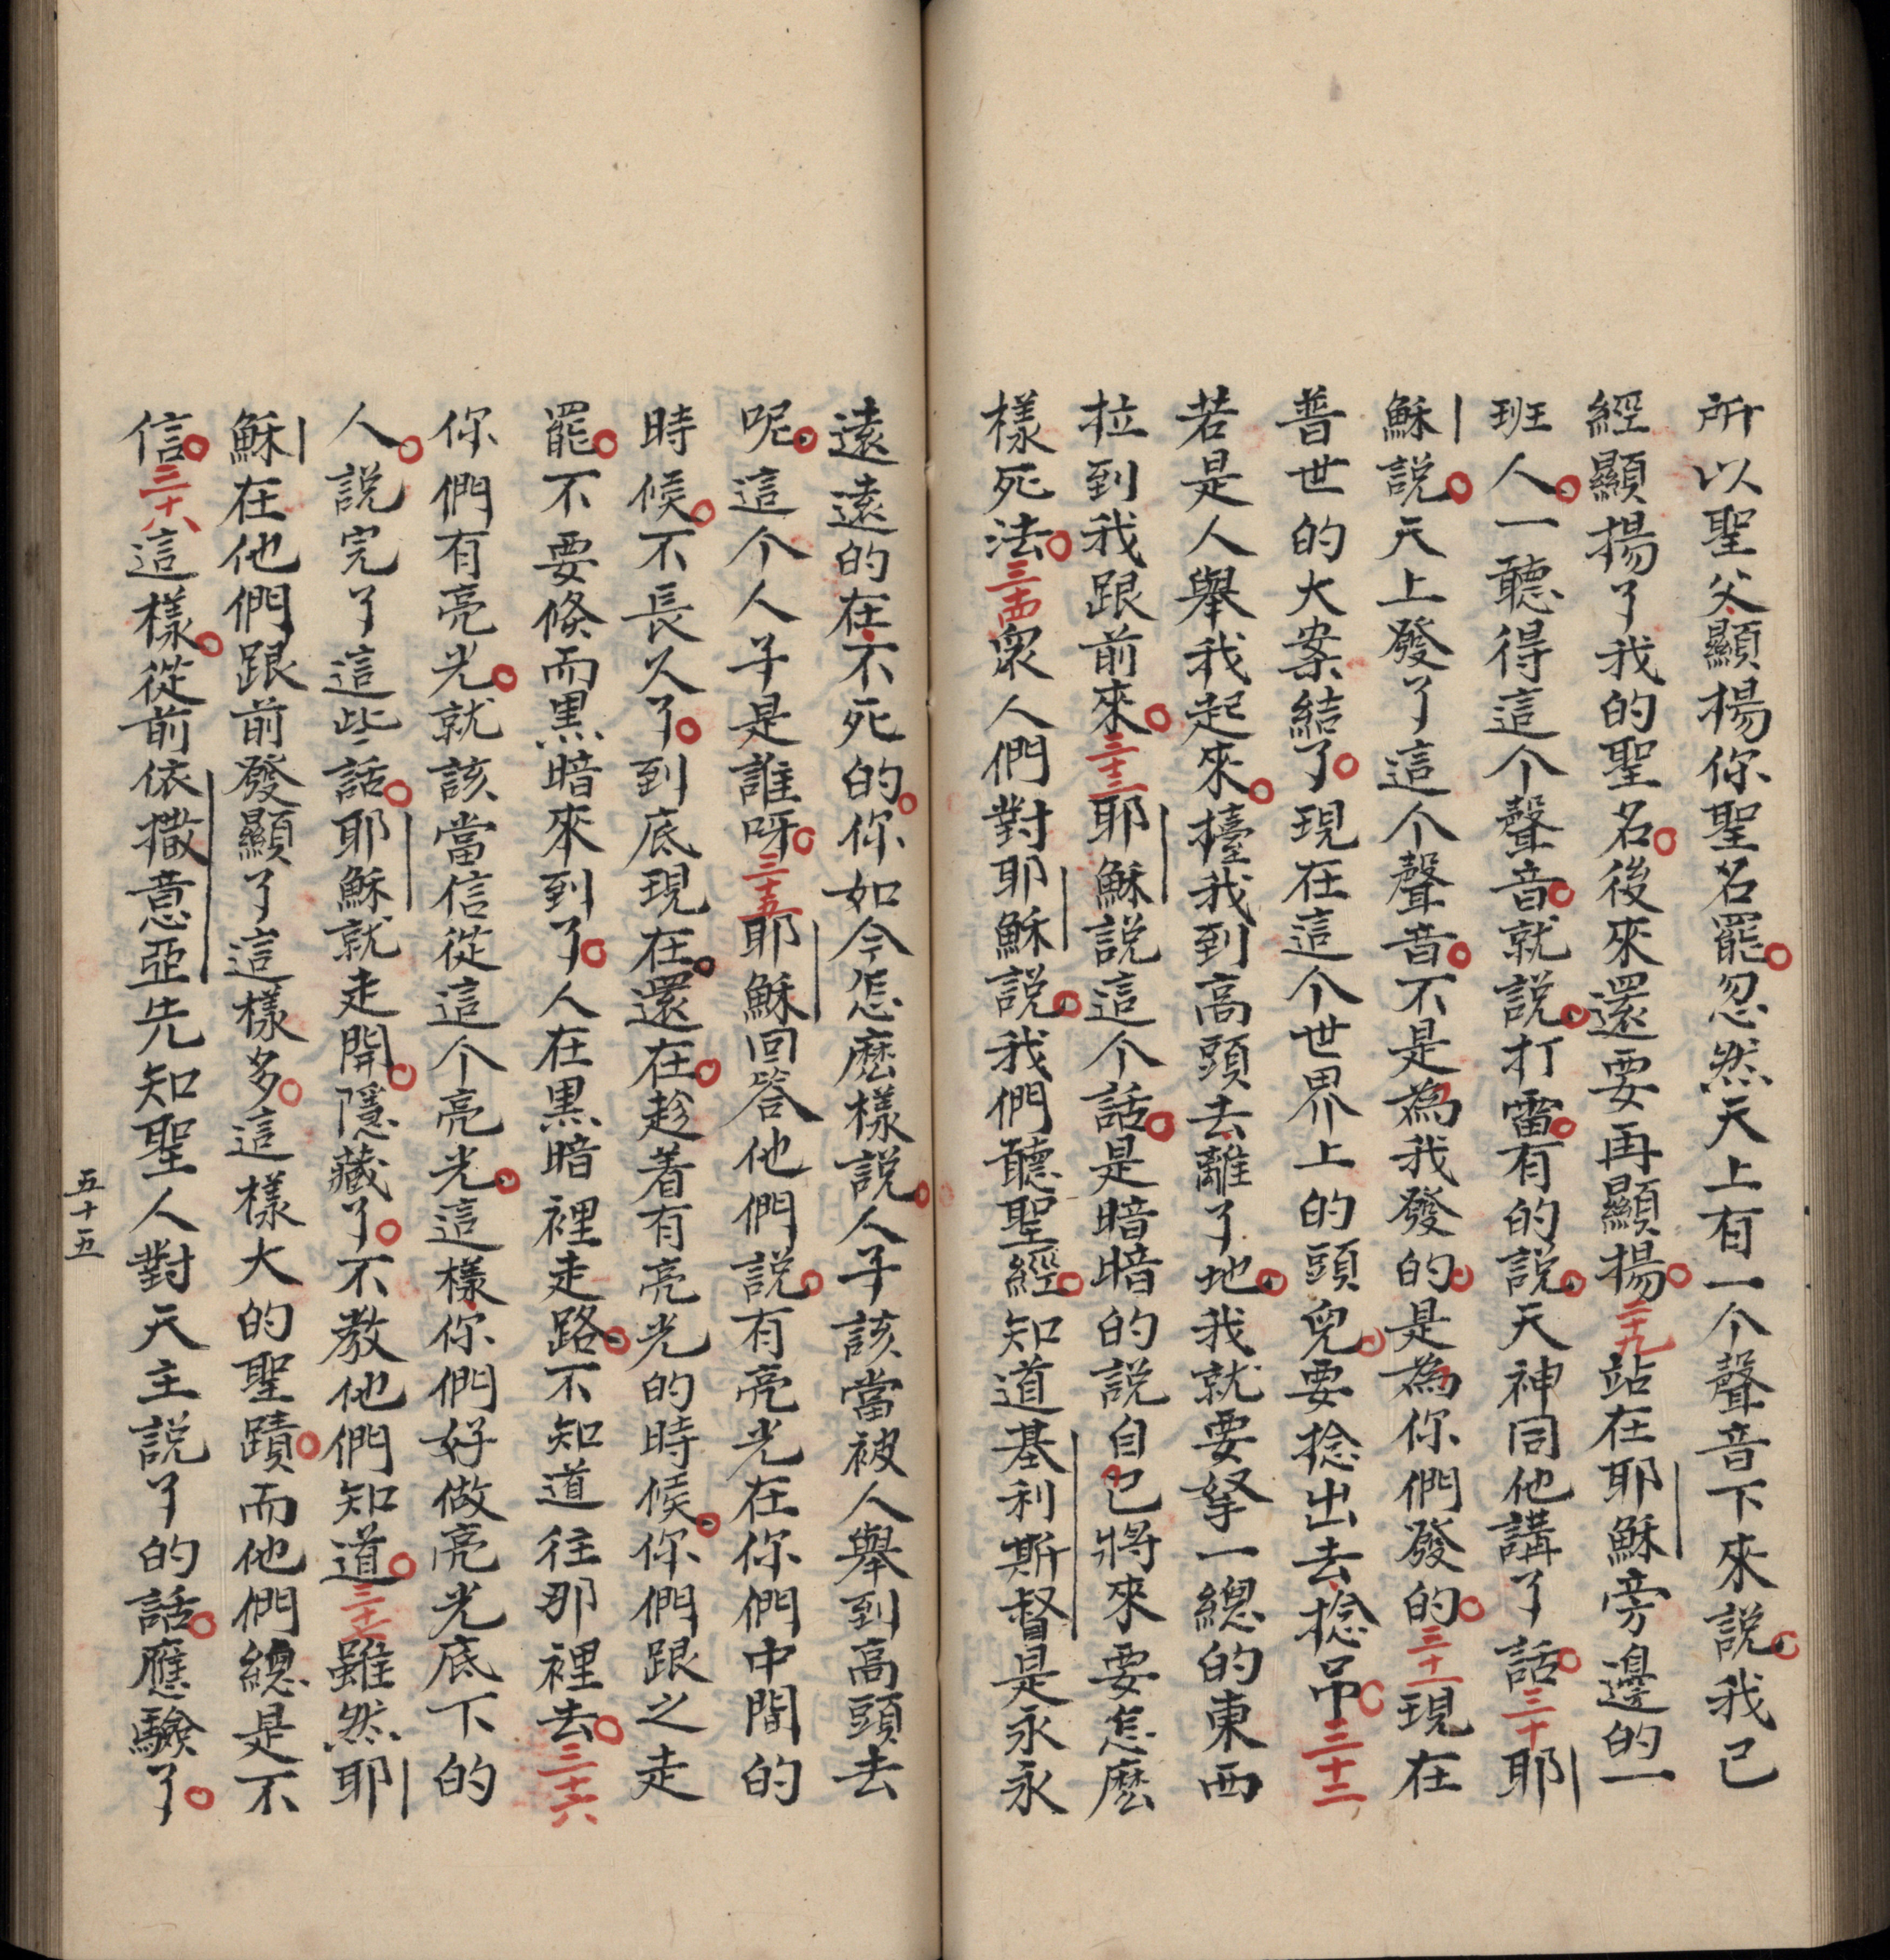 所以聖父顯揚你聖名罷忽然天上有一个聲音下來說我已
經顯揚了我的聖名後來還要再顯揚二十九站在耶穌旁邊的一
班人一聽得這个聲音就說打雷有的說天神同他講了話三十耶
穌說天上發了這个聲音不是為我發的是為你們發的三十一現在
普世的大案結了現在這个世界上的頭兒要捻出去捻吊三十二
若是人舉我起來擡我到高頭去離了地我就要拏一總的東西
拉到我跟前來三十三耶穌說這个話是暗暗的說自己將來要怎麽
樣死法三十四衆人們對耶穌說我們聽聖經知道基利斯督是永永
遠遠的在不死的你如今怎麽樣說人子該當被人舉到高頭去
呢這个人子是誰呀三十五耶穌回答他們說有亮光在你們中間的
時候不長久了到底現在還在趁着有亮光的時候你們跟之走
罷不要倏而黑暗來到了人在黑暗裡走路不知道往那裡去三十六
你們有亮光就該當信從這个亮光這樣你們好做亮光底下的
人說完了這些話耶穌就走開隱藏了不教他們知道三十七雖然耶
穌在他們跟前發顯了這樣多這樣大的聖蹟而他們總是不
信三十八這樣從前依撒意亞先知聖人對天主說了的話應驗了
五十五